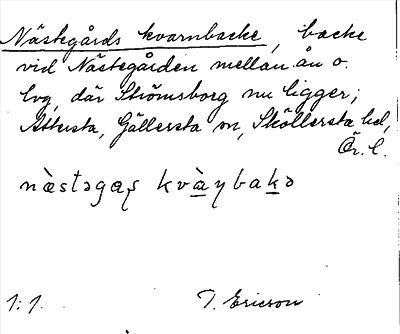 Nästegårds kvarnbacke, backe
vid Nästegården mellan ån o.
lvg, där Strömsborg nu ligger;
Attersta, Gällersta sn, Sköllersta hd,
Ör. l.
næ̀stəgaʂ kvà̱ɳbaḵə
1:1. T. Ericson